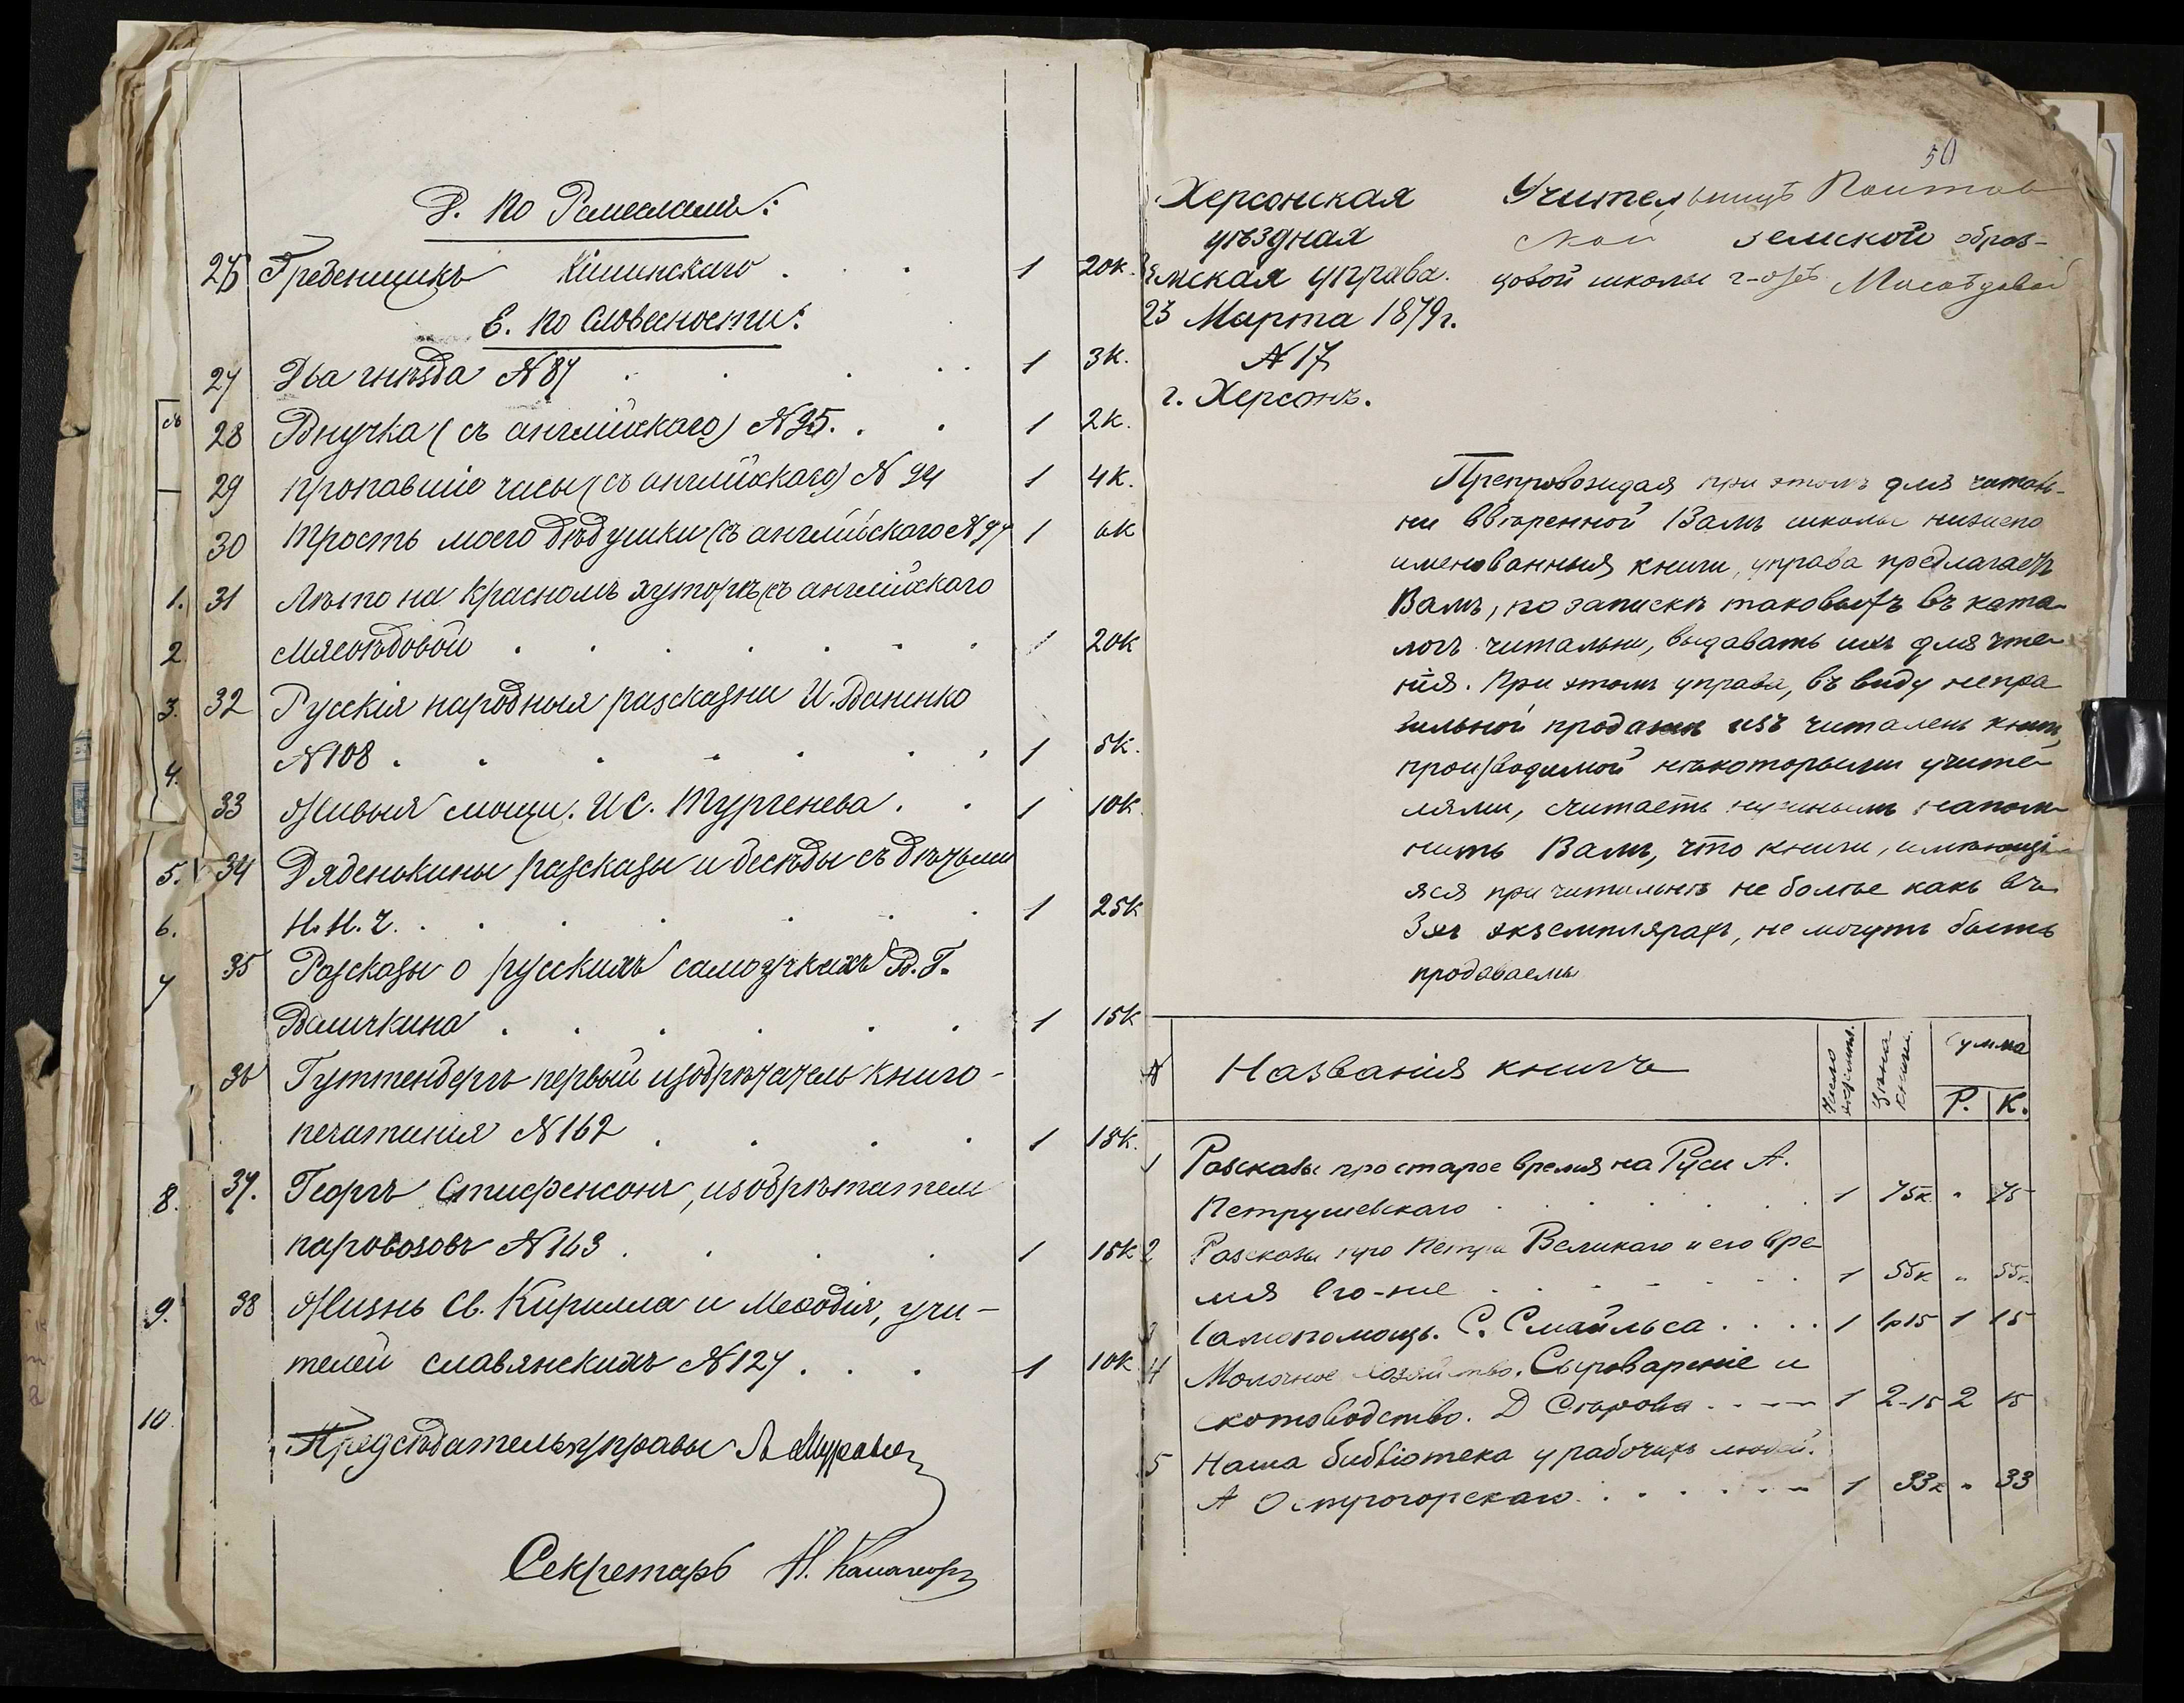 Д. По Ремесламъ:
26 Гребенщикъ Кишинскаго . . . 1 20к.
Е. По Словесности:
27 Два гнѣзда №87 . . . . . 1 3к.
съ
28 Внучка (съ англійскаго) №95. . . 1 2к.
29 Пропавшіе часы (съ англійскаго) № 94 1 4к.
30 Трость моего дѣдушки (съ англійскаго №97 1 6к
1. 31 Лѣто на Красномъ хуторѣ (съ англійскаго
2. Мясоѣдовой . . . . . . . 1 20к
3. 32 Русскія народныя разсказни И. Ваненко
4. №108 . . . . . . . 1 5к.
33 Живыя мощи. И С. Тургенева . . 1 10к
5. 34 Дяденькины разсказы и бесѣды съ дѣтьми
6. Н. Н. Ч. . . . . . . 1 25к
7 35 Разсказы о русскихъ самоучкахъ В. Г.
. . . . . . 1 15к
36 Гуттенбергъ первый изобрѣтатель книго-
печатанія №162 . . . . 1 15к.
8. 37. Георгъ Стифенсонъ, изобрѣтатель
паровозовъ №163 . . . . 1 15к
9. 38 Жизнь Св. Кирилла и Меѳодія, учи-
телей славянскихъ №127 . . . 1 10к
10.
Предсѣдатель управы
Секретарь Н.
50
Херсонская
уѣздная
земская управа.
23 Марта 1879 г.
№ 17
г. Херсонъ.
Учительницѣ
ской земской образ-
цовой школы г-жѣ Мясоѣдовой
Препровождая при этомъ для читаль-
ни ввѣренной Вамъ школы нижепо
именованныя книги, управа предлагаетъ
Вамъ, по запискѣ таковыхъ въ ката-
логъ читальни, выдавать ихъ для чте-
нія. При этомъ управа, въ виду непра
вильной продажи изъ читалень книгъ,
производимой нѣкоторыми учите-
лями, считаетъ нужнымъ напом-
нить Вамъ, что книги, имѣющі-
яся при читальнѣ не болѣе какъ въ
3хъ экземплярахъ, не могутъ быть
продаваемы
№ Названія книгъ Число экземпл. Цѣна книги. Сумма
Р. К.
1 Разсказы про старое время на Руси А.
Петрушевскаго . . . . . . 1 75к " 75
2 Разсказы про Петра Великаго и его вре
мя Его-же . . . . . . 1 55к " 55к
3 Самопомощь. С. Смайльса . . . . 1 1р15 1 15
4 Молочное хозяйство. Сыровареніе и
скотоводство. Д . . . 1 2-15 2 15
5 Наша библіотека у рабочихъ людей.
А Острогорскаго . . . . . . 1 33к " 33